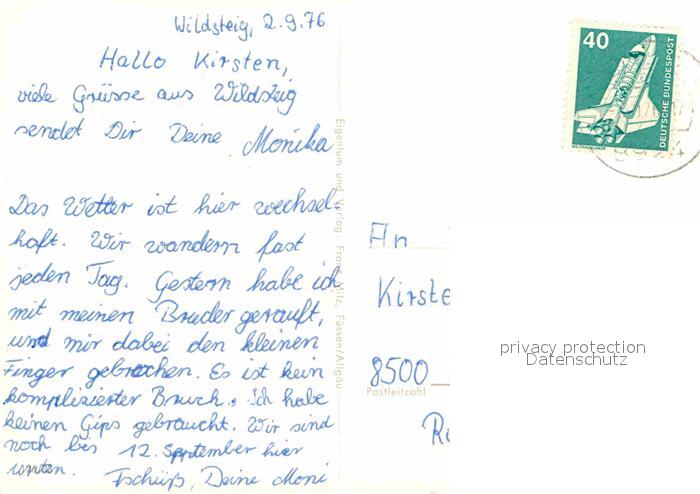 Wildsteig, 2.9.76
Hallo Kirsten,
viele Grüsse aus Wildsteig
sendet Dir Deine Monika
Das Wetter ist hier wechsel-
haft. Wir wandern fast
jeden Tag. Gestern habe ich
mit meinen Bruder gerauft,
und mir dabei den kleinen
Finger gebrochen. Es ist kein
komplizierter Bruch. Ich habe
keinen Gips gebraucht. Wir sind
noch bis 12. September hier
unten. Tschüß, Deine Moni
Eigentum und Verlag: Franz Milz, Füssen/Allgäu
40
DEUTSCHE BUNDESPOST
WELTRAUMLABOR
An
Kirste
8500
Postleitzahl
privacy protection
Datenschutz